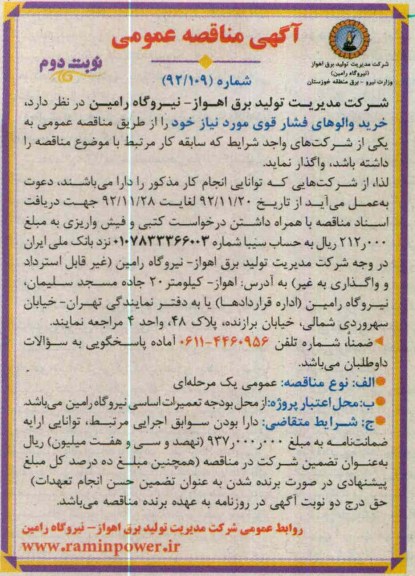 آگهی مناقصه عمومی
شرکت مدیریت تولید برق اهواز
(نیروگاه رامین)
وزارت نیرو - برق منطقه خوزستان
نوبت دوم
شماره (۹۲/۱۰۹)
شرکت مدیریت تولید برق اهواز- نیروگاه رامین در نظر دارد،
خرید والوهای فشار قوی مورد نیاز خود را از طریق مناقصه عمومی به
یکی از شرکت‌های واجد شرایط که سابقه کار مرتبط با موضوع مناقصه را
داشته باشد، واگذار نماید.
لذا، از شرکت‌هایی که توانایی انجام کار مذکور را دارا می‌باشند، دعوت
به‌عمل می‌آید از تاریخ ۹۲/۱۱/۲۰ لغایت ۹۲/۱۱/۲۸ جهت دریافت
اسناد مناقصه با همراه داشتن درخواست کتبی و فیش واریزی به مبلغ
۲۱۲٫۰۰۰ ریال به حساب سیبا شماره ۰۱۰۷۸۳۳۳۶۶۰۰۳ نزد بانک ملی ایران
در وجه شرکت مدیریت تولید برق اهواز- نیروگاه رامین (غیر قابل استرداد
و واگذاری به غیر) به آدرس: اهواز- کیلومتر ۲۰ جاده مسجد سلیمان،
نیروگاه رامین (اداره قراردادها) یا به دفتر نمایندگی تهران- خیابان
سهروردی شمالی، خیابان برازنده، پلاک ۴۸، واحد ۴ مراجعه نمایند.
ضمناً، شماره تلفن ۴۴۶۰۹۵۶-۰۶۱۱ آماده پاسخگویی به سؤالات
داوطلبان می‌باشد.
الف: نوع مناقصه: عمومی یک مرحله‌ای
ب: محل اعتبار پروژه: از محل بودجه تعمیرات اساسی نیروگاه رامین می‌باشد.
ج: شرایط متقاضی: دارا بودن سوابق اجرایی مرتبط، توانایی ارایه
ضمانت‌نامه به مبلغ ۹۳۷٫۰۰۰٫۰۰۰ (نهصد و سی و هفت میلیون) ریال
به‌عنوان تضمین شرکت در مناقصه (همچنین مبلغ ده درصد کل مبلغ
پیشنهادی در صورت برنده شدن به عنوان تضمین حسن انجام تعهدات)
حق درج دو نوبت آگهی در روزنامه به عهده برنده مناقصه می‌باشد.
روابط عمومی شرکت مدیریت تولید برق اهواز- نیروگاه رامین
www.raminpower.ir